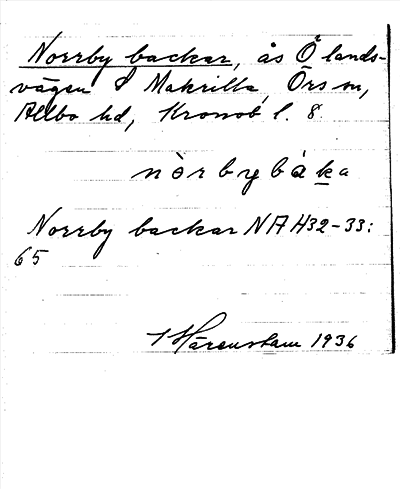 Norrby backar, ås Ö lands-
vägen Ö Makrilla, Örs sn,
Allbo hd, Kronob l. 8
nòrbybáka
Norrby backar NA H32-33:
65
Härenstam 1936